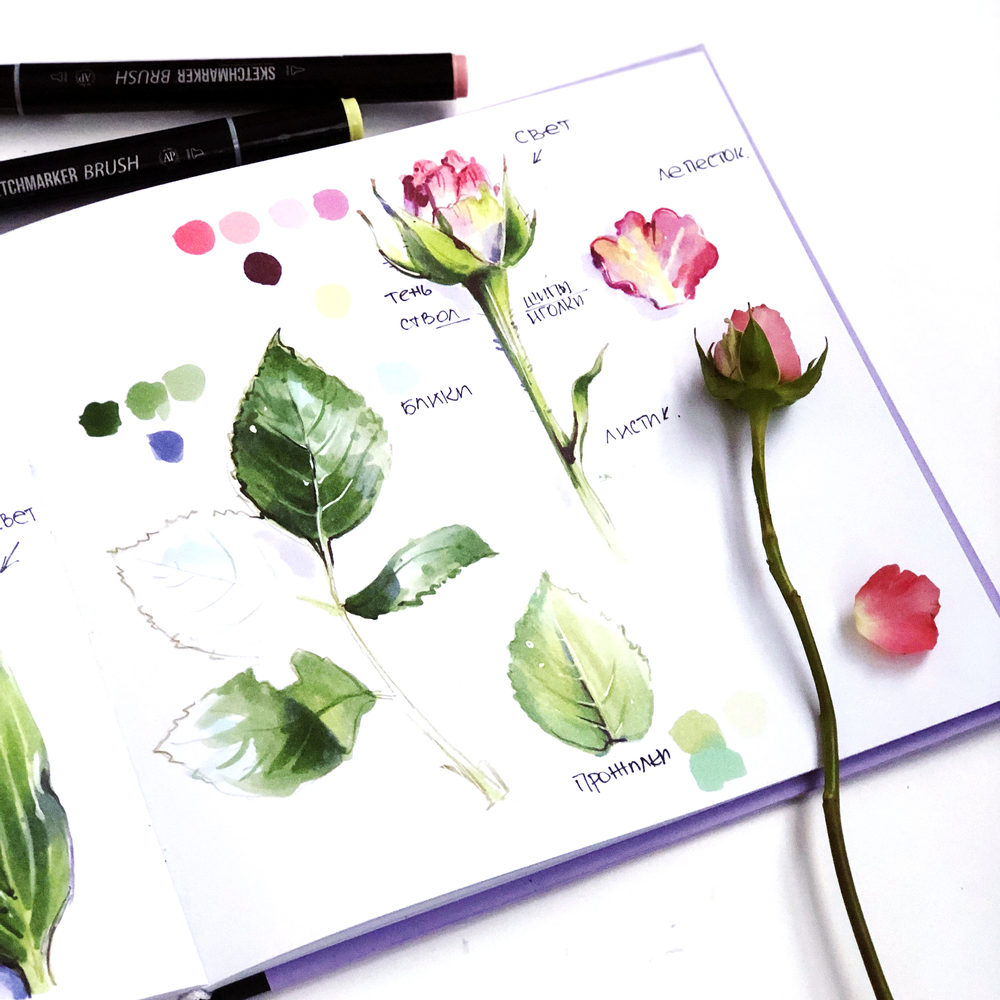 SKETCHMARKER BRUSH
AP
TCHMARKER BRUSH
AP
свет
лепесток.
тень
ствол
шипы
иголки
блики
листик.
свет
прожилки